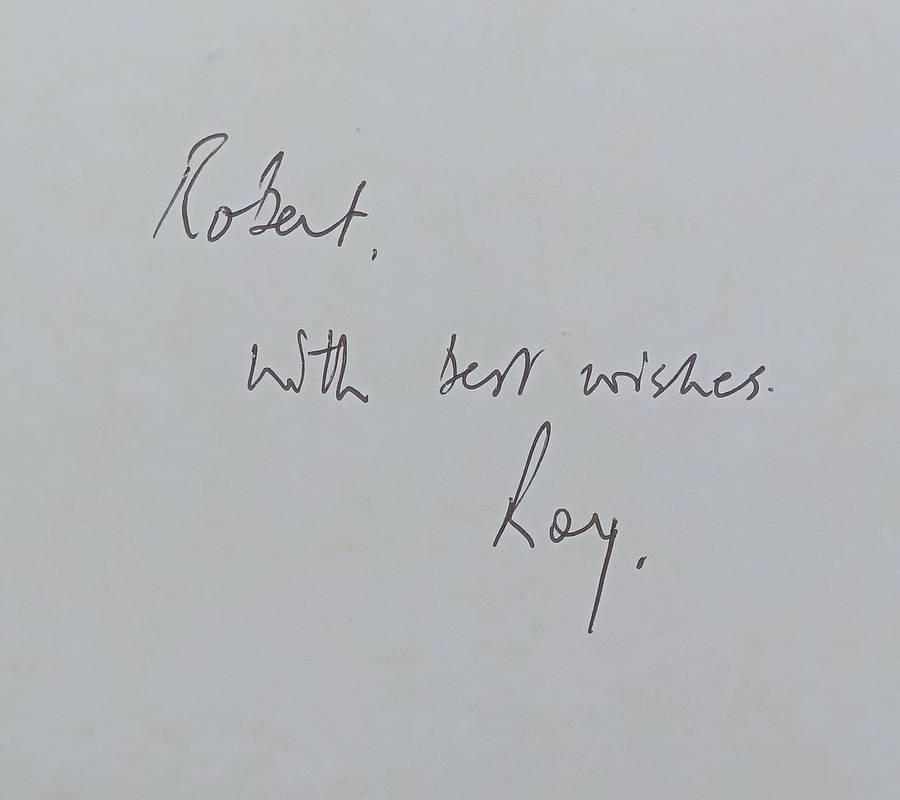 Robert.
with best wishes.
Roy.